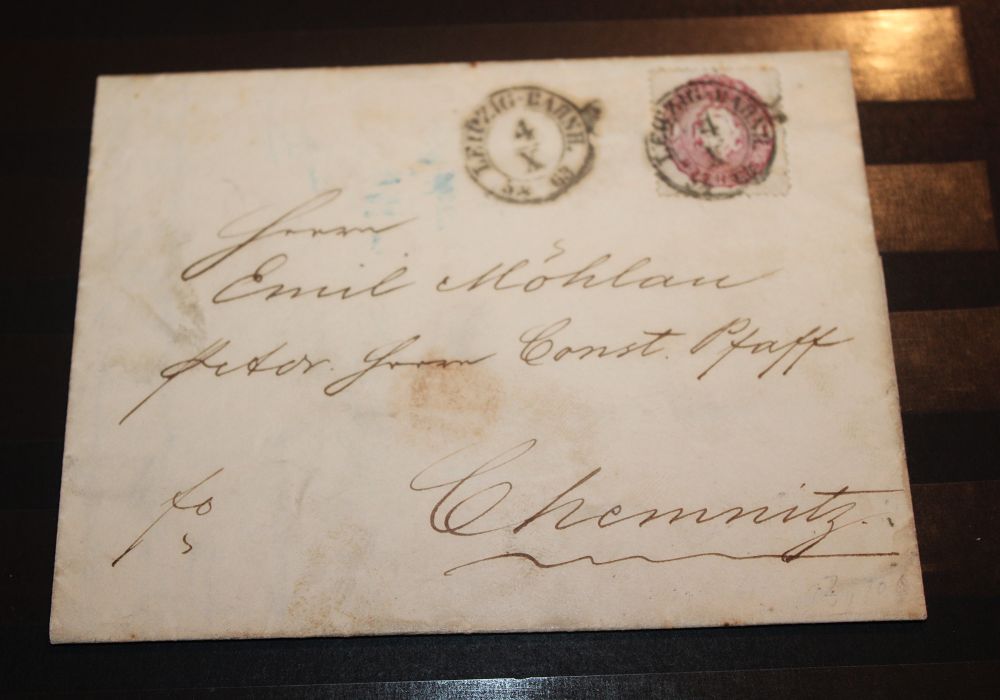 LEIPZIG-BAHNH.
4
X
LEIPZIG-BAHNH.
4
X
Herrn
Emil Möhlau
Herrn Const. Pfaff
fo
Chemnitz.